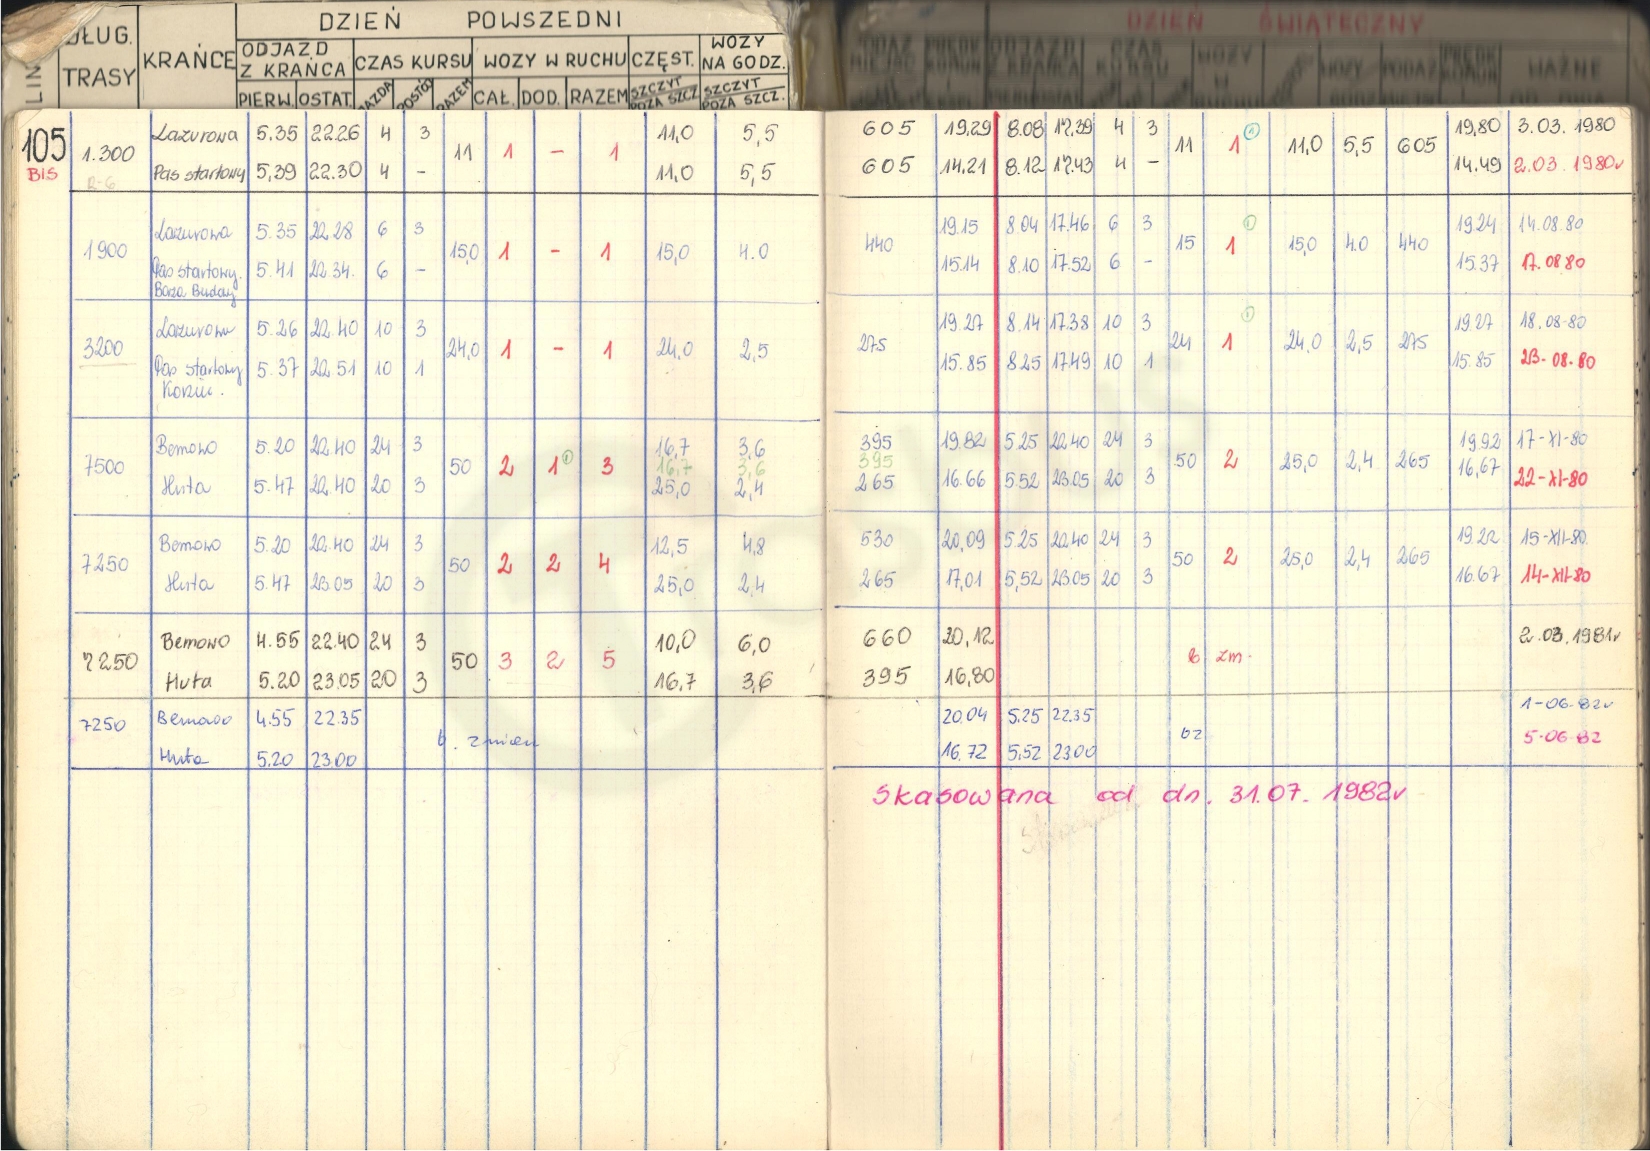 DZIEŃ POWSZEDNI
DZIEŃ ŚWIĄTECZNY
DŁUG. TRASY KRAŃCE ODJAZD Z KRAŃCA CZAS KURSU WOZY W RUCHU CZĘST. WOZY NA GODZ.
LIN PIERW. OSTAT. JAZDA POSTÓJ RAZEM CAŁ. DOD. RAZEM SZCZYT POZA SZCZ SZCZYT POZA SZCZ.
WAŻNE
105 BIS
1.300 R-6
Lazurowa 5.35 22.26 4 3 11 1 – 1 11,0 5,5 605 19,29 8.08 17.39 4 3 11 1 ① 11,0 5,5 605 19,80 3.03.1980
Pas startowy 5,39 22.30 4 – 11,0 5,5 605 14,21 8.12 17.43 4 – 14.49 2.03.1980r
1900
Lazurowa 5.35 22.28 6 3 15,0 1 – 1 15,0 4.0 440 19.15 8.04 17.46 6 3 15 1 ① 15,0 4.0 440 19.24 14.08.80
Pas startowy. 5.41 22.34. 6 – 15.14 8.10 17.52 6 – 15.37 17.08.80
3200
Lazurowa 5.26 22.40 10 3 24,0 1 – 1 24,0 2,5 275 19.27 8.14 17.38 10 3 24 1 ① 24,0 2,5 275 19.27 18.08-80
Pas startowy 5.37 22.51 10 1 15.85 8.25 17.49 10 1 15.85 23-08-80
7500
Bemowo 5.20 22.40 24 3 50 2 1 ① 3 16,7 3,6 395 19.82 5.25 22.40 24 3 50 2 25,0 2,4 265 19.92 17-XI-80
16,7 3,6 395
Huta 5.47 22.40 20 3 25,0 2,4 265 16.66 5.52 23.05 20 3 16,67 22-XI-80
7250
Bemowo 5.20 22.40 24 3 50 2 2 4 12,5 4,8 530 20,09 5.25 22.40 24 3 50 2 25,0 2,4 265 19.22 15-XII-80
Huta 5.47 23.05 20 3 25,0 2,4 265 17,01 5,52 23.05 20 3 16.67 14-XII-80
7250
Bemowo 4.55 22.40 24 3 50 3 2 5 10,0 6,0 660 20,12 b zm. 2.03.1981r
Huta 5.20 23.05 20 3 16,7 3,6 395 16,80
7250
Bemowo 4.55 22.35 b. zmian 20.04 5.25 22.35 bz 1-06-82r
Huta 5.20 23.00 16.72 5,52 23.00 5-06-82
Skasowana od dn. 31.07.1982r